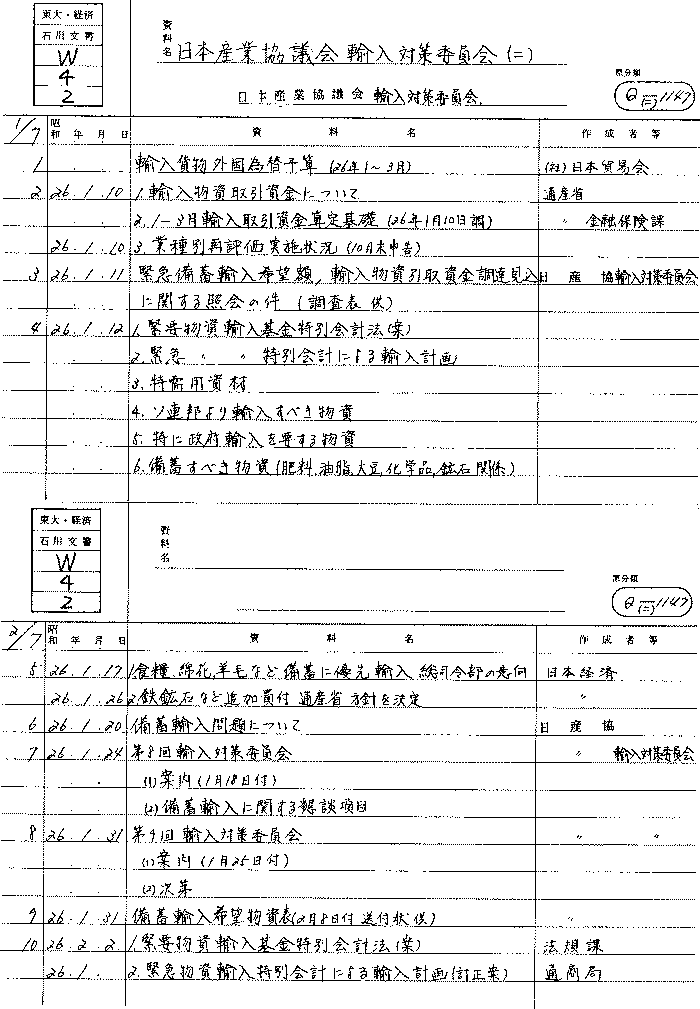 東大・経済
石川文書
W
4
2
資料名 日本産業協議会輸入対策委員会(二)
日本産業協議会 輸入対策委員会.
原分類
Q (二) 1147
1/7 昭和 年 月 日 資 料 名 作 成 者 等
1 輸入貨物外国為替予算 (26年1〜3月) (社)日本貿易会
2 26.1.10 1.輸入物資取引資金について 通産省
2.1-3月輸入取引資金算定基礎 (26年1月10日調) 〃 金融保険課
26.1.10 3.業種別再評価実施状況 (10月末申告)
3 26.1.11 緊急備蓄輸入希望額, 輸入物資引取資金調達見込 日産協輸入対策委員会
に関する照会の件 (調査表 供)
4 26.1.12 1.緊要物資輸入基金特別会計法(案)
2.緊急 〃 〃 特別会計による輸入計画
3.特需用資材
4.ソ連邦より輸入すべき物資
5.特に政府輸入を要する物資
6.備蓄すべき物資(肥料,油脂,大豆,化学品,鉱石関係)
東大・経済
石川文書
W
4
2
資料名
原分類
Q (二) 1147
2/7 昭和 年 月 日 資 料 名 作 成 者 等
5 26.1.17 1.食糧,綿花,羊毛など備蓄に優先輸入 総司令部の意向 日本経済
26.1.26 2.鉄鉱石など追加買付 通産省方針を決定 〃
6 26.1.20 備蓄輸入問題について 日産協
7 26.1.24 第8回輸入対策委員会 〃 輸入対策委員会
(1)案内(1月18日付)
(2)備蓄輸入に関する懇談項目
8 26.1.31 第9回 輸入対策委員会 〃 〃
(1)案内 (1月25日付)
(2)次第
9 26.1.31 備蓄輸入希望物資表(2月8日付 送付状 供) 〃
10 26.2.2 1.緊要物資輸入基金特別会計法(案) 法規課
26.1. 2.緊急物資輸入特別会計による輸入計画(訂正案) 通商局